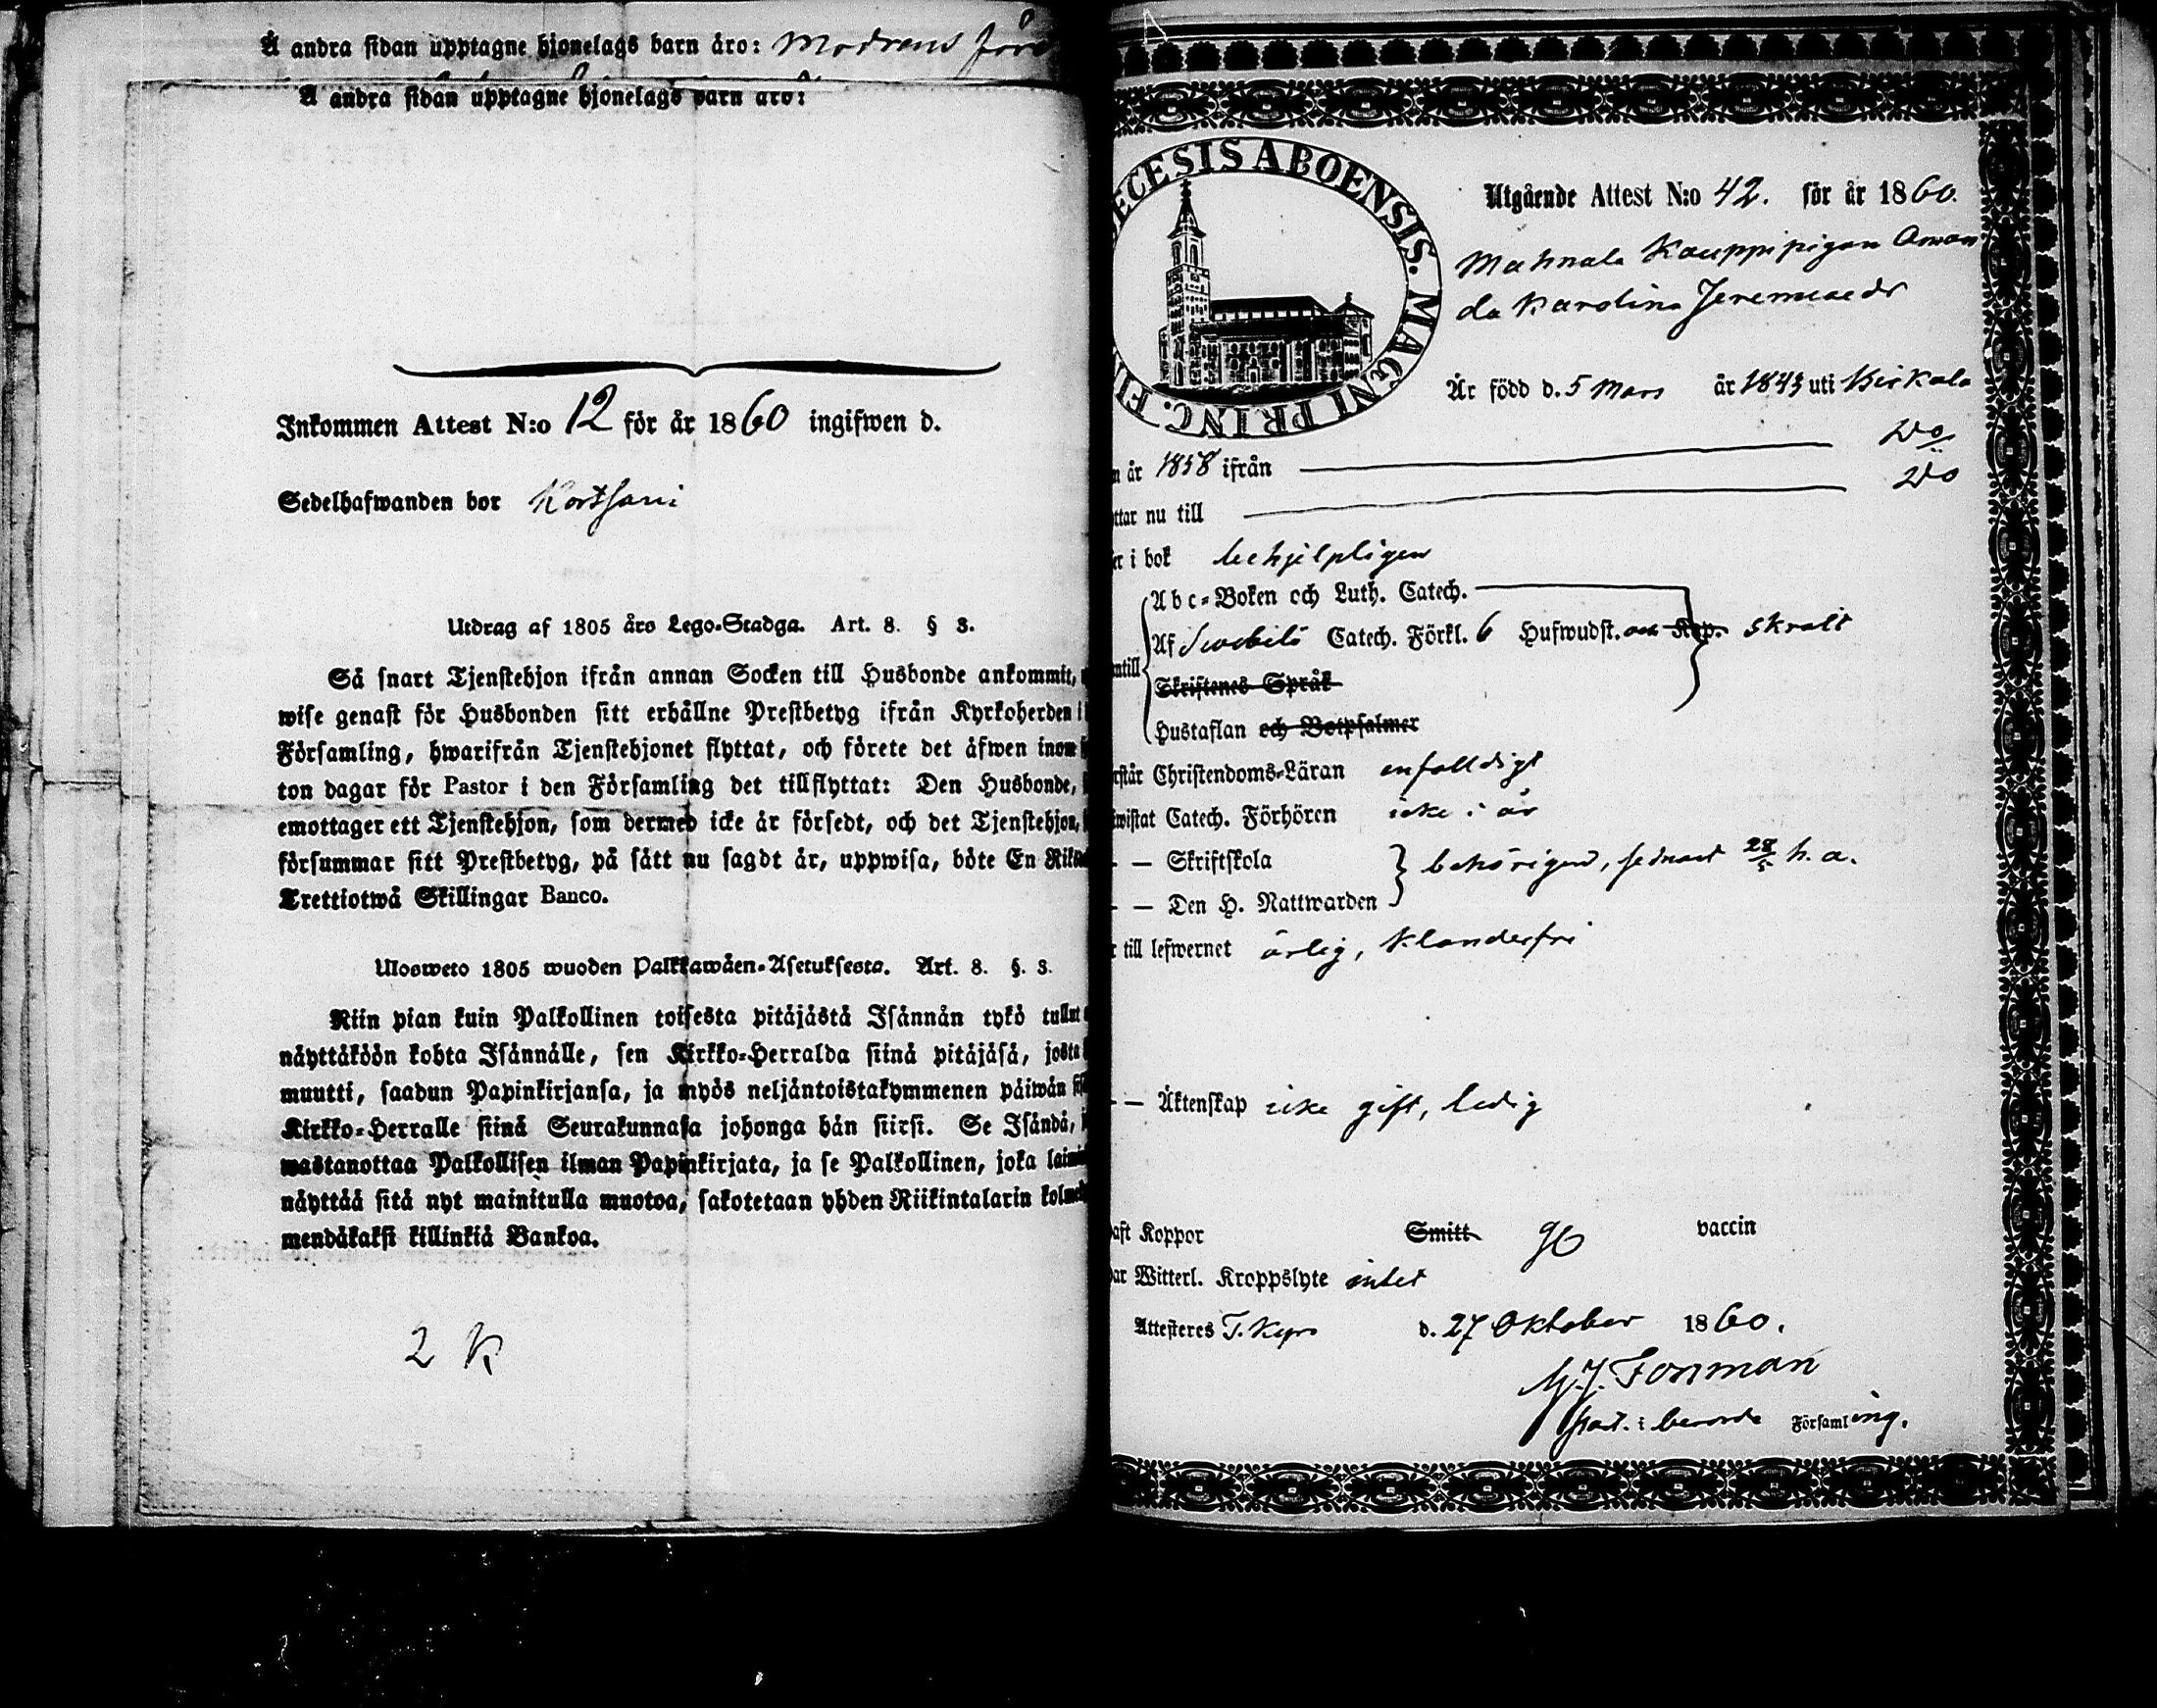 Å andra sidan upptagne hjonelags barn äro: Modrens före
Å andra sidan upptagne hjonelags barn äro:
Inkommen Attest N:o 12 för år 1860 ingifwen d.
Sedelhafwanden bor Kortsari
Utdrag af 1805 års Lego-Stadga. Art. 8. § 3.
Så snart Tjenstehjon ifrån annan Socken till Husbonde ankommit,
wise genast för Husbonden sitt erhållne Prestbetyg ifrån Kyrkoherden i
Församling, hwarifrån Tjenstehjonet flyttat, och förete det äfwen inom
ton dagar för Pastor i den Församling det tillflyttat: Den Husbonde,
emottager ett Tjenstehjon, som dermed icke är försedt, och det Tjenstehjon,
försummar sitt Prestbetyg, på sätt nu sagdt är, uppwisa, böte En Riks
Trettiotwå Skillingar Banco.
Ulosweto 1805 wuoden Palkkawäen-Asetuksesta. Art. 8. §. 3.
Niin pian kuin Palkollinen toisesta pitäjästä Isännän tykö tullut
näyttäköön kohta Isännälle, sen Kirkko-Herralda siinä pitäjäsä, josta
muutti, saadun Papinkirjansa, ja myös neljäntoistakymmenen päiwän sis
Kirkko-Herralle siinä Seurakunnasa johonga hän siirsi. Se Isändä, j
wastanottaa Palkollisen ilman Papinkirjata, ja se Palkollinen, joka laimi
näyttää sitä nyt mainitulla muotoa, sakotetaan yhden Riikintalarin kolme
mendäkaksi killinkiä Bankoa.
2 K
ECESIS ABOENSIS. MAGNI PRINC. FIN
Utgående Attest N:o 42. för år 1860.
Mahnala Kauppi pigan Aman
da Karolina Jeremiaedr
Är född d. 5 Mars år 1843 uti Kirkala
n år 1858 ifrån Do
ttar nu till Do
er i bok behjelpligen
Abc-Boken och Luth. Catech.
ntill Af Swebili Catech. Förkl. 6 Hufwudst. och Kap. skralt
Skriftenes Språk
Hustaflan och Botpsalmer
rstår Christendoms-Läran enfalldigt
wistat Catech. Förhören icke i år
– – Skriftskola
behörigen, sednast 28/5 h. a.
– – Den H. Nattwarden
r till lefwernet ärlig, klanderfri
– – Äktenskap icke gift, ledig
aft Koppor Smitt gm vaccin
ar Witterl. Kroppslyte intet
Attesteres T. Kyro d. 27 Oktober 1860.
M. J. Forsman
Past. i berörde Församling.